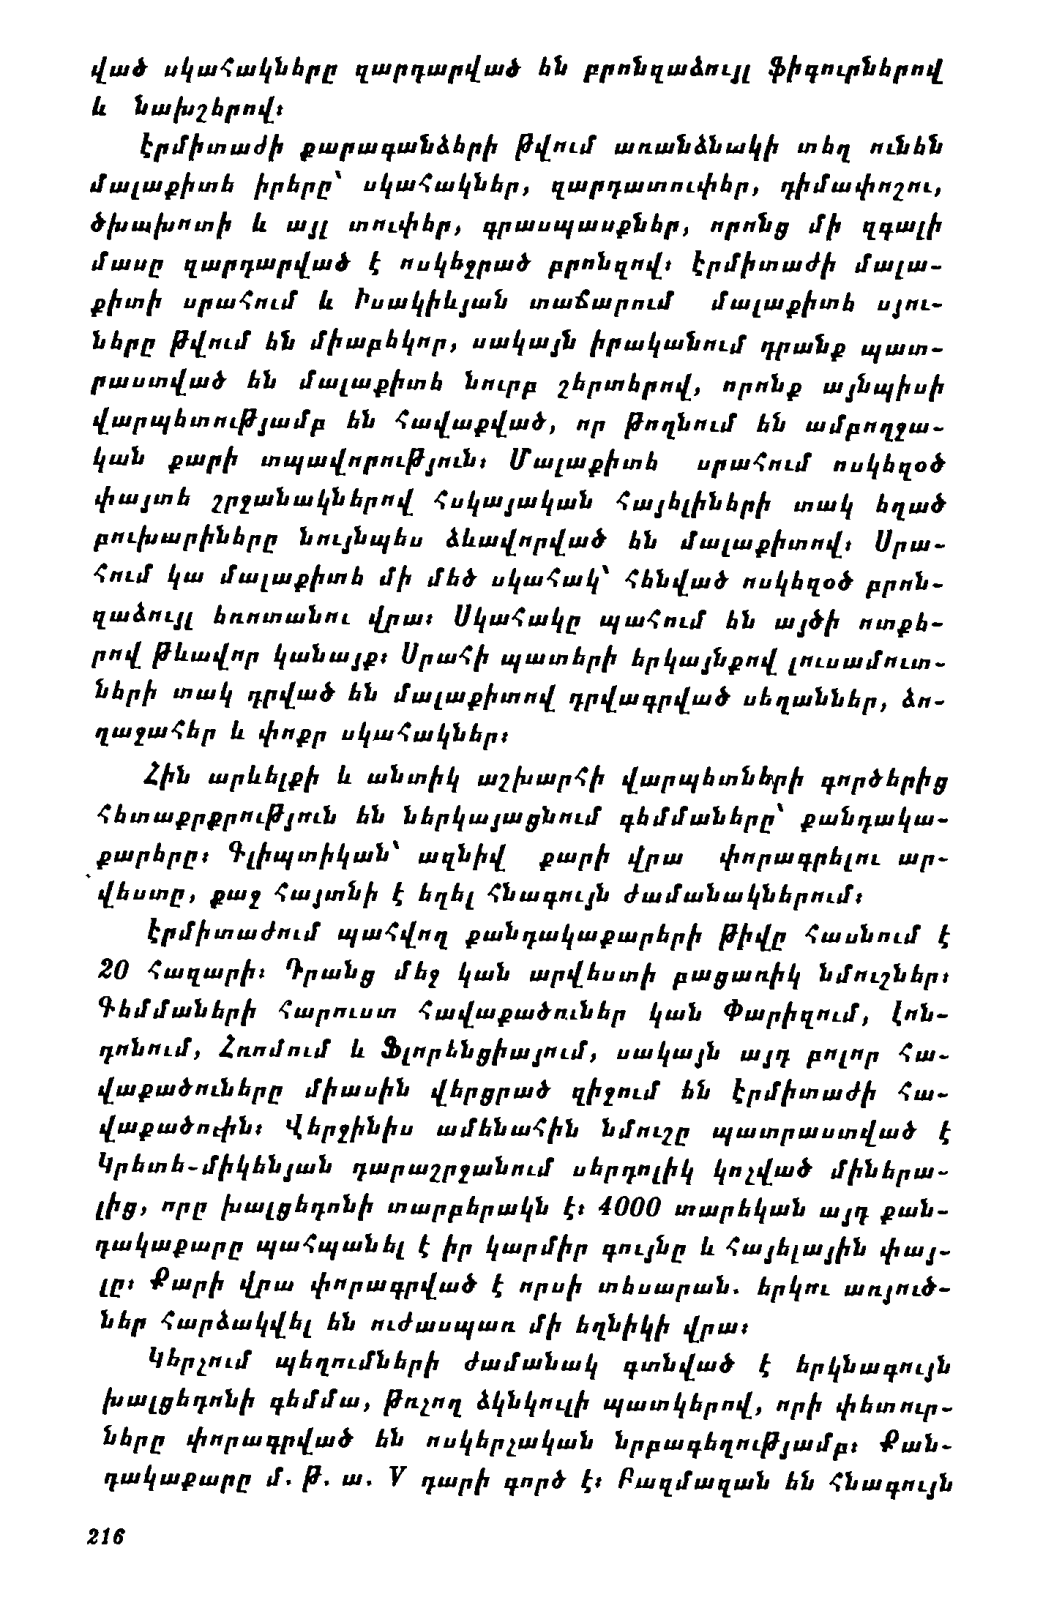 ված սկահակները զարդարված են բրոնզաձույլ ֆիգուրներով
և նախշերով։
Էրմիտաժի քարագանձերի թվում առանձնակի տեղ ունեն
մալաքիտե իրերը՝ սկահակներ, զարդատուփեր, դիմափոշու,
ծխախոտի և այլ տուփեր, գրասպասքներ, որոնց մի զգալի
մասը զարդարված է ոսկեջրած բրոնզով։ Էրմիտաժի մալա-
քիտի սրահում և Իսակիևյան տաճարում մալաքիտե սյու-
ները թվում են միաբեկոր, սակայն իրականում դրանք պատ-
րաստված են մալաքիտե նուրբ շերտերով, որոնք այնպիսի
վարպետությամբ են հավաքված, որ թողնում են ամբողջա-
կան քարի տպավորություն։ Մալաքիտե սրահում ոսկեզօծ
փայտե շրջանակներով հսկայական հայելիների տակ եղած
բուխարիները նույնպես ձևավորված են մալաքիտով։ Սրա-
հում կա մալաքիտե մի մեծ սկահակ՝ հենված ոսկեզօծ բրոն-
զաձույլ եռոտանու վրա։ Սկահակը պահում են այծի ոտքե-
րով թևավոր կանայք։ Սրահի պատերի երկայնքով լուսամուտ-
ների տակ դրված են մալաքիտով դրվագրված սեղաններ, ձո-
ղաջահեր և փոքր սկահակներ։
Հին արևելքի և անտիկ աշխարհի վարպետների գործերից
հետաքրքրություն են ներկայացնում գեմմաները՝ քանդակա-
քարերը։ Գլիպտիկան՝ ազնիվ քարի վրա փորագրելու ար-
վեստը, քաջ հայտնի է եղել հնագույն ժամանակներում։
Էրմիտաժում պահվող քանդակաքարերի թիվը հասնում է
20 հազարի։ Դրանց մեջ կան արվեստի բացառիկ նմուշներ։
Գեմմաների հարուստ հավաքածուներ կան Փարիզում, Լոն-
դոնում, Հռոմում և Ֆլորենցիայում, սակայն այդ բոլոր հա-
վաքածուները միասին վերցրած զիջում են Էրմիտաժի հա-
վաքածուին։ Վերջինիս ամենահին նմուշը պատրաստված է
Կրետե-միկենյան դարաշրջանում սերդոլիկ կոչված միներա-
լից, որը խալցեդոնի տարբերակն է։ 4000 տարեկան այդ քան-
դակաքարը պահպանել է իր կարմիր գույնը և հայելային փայ-
լը։ Քարի վրա փորագրված է որսի տեսարան. երկու առյուծ-
ներ հարձակվել են ուժասպառ մի եղնիկի վրա։
Կերչում պեղումների ժամանակ գտնված է երկնագույն
խալցեդոնի գեմմա, թռչող ձկնկուլի պատկերով, որի փետուր-
ները փորագրված են ոսկերչական նրբագեղությամբ։ Քան-
դակաքարը մ. թ. ա. V դարի գործ է։ Բազմազան են հնագույն
216